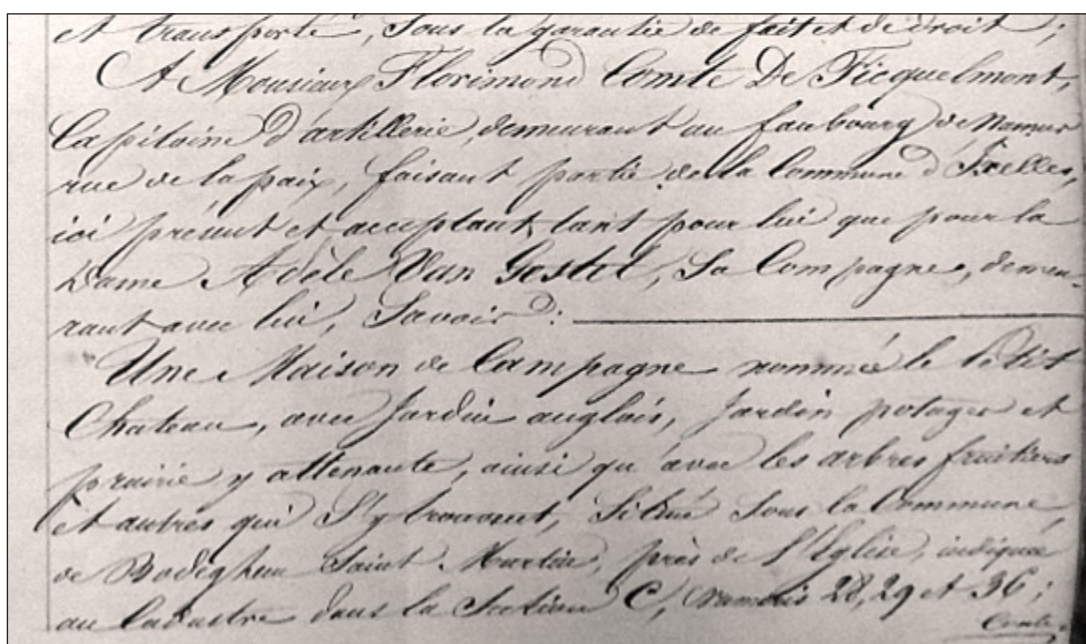 et transporté, sous la garantie de fait et de droit ;
A Monsieur Florimond Comte De Ficquelmont,
Capitaine d'artillerie, demeurant au faubourg de Namur
rue de la paix, faisant partie de la Commune d'Ixelles,
ici présent et acceptant, tant pour lui que pour la
Dame Adèle Van Gestel, Sa Compagne, demeu-
rant avec lui, Savoir :
Une Maison de Campagne nommée le Petit
Chateau, avec Jardin anglais, Jardin potager et
prairie y attenante, ainsi qu'avec les arbres fruitiers
et autres qui S'y trouvent, Situé Sous la Commune
de Bodeghem Saint Martin, près de l'Eglise, indiquée
au Cadastre dans la Section C, numéros 28, 29 et 36 ;